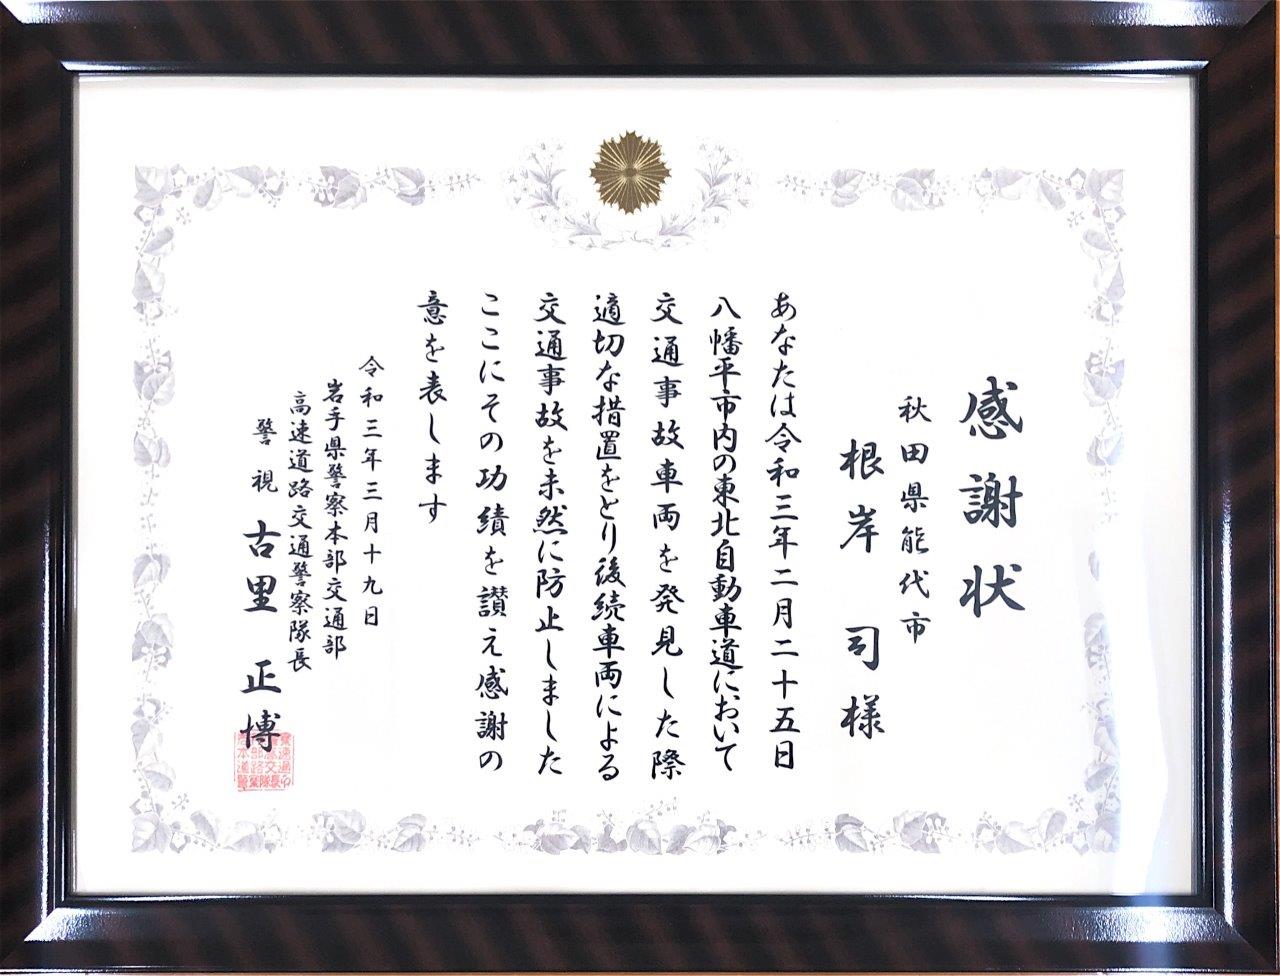 感謝状
秋田県能代市
根岸 司様
あなたは令和三年二月二十五日
八幡平市内の東北自動車道において
交通事故車両を発見した際
適切な措置をとり後続車両による
交通事故を未然に防止しました
ここにその功績を讃え感謝の
意を表します
令和三年三月十九日
岩手県警察本部交通部
高速道路交通警察隊長
警視 古里 正博